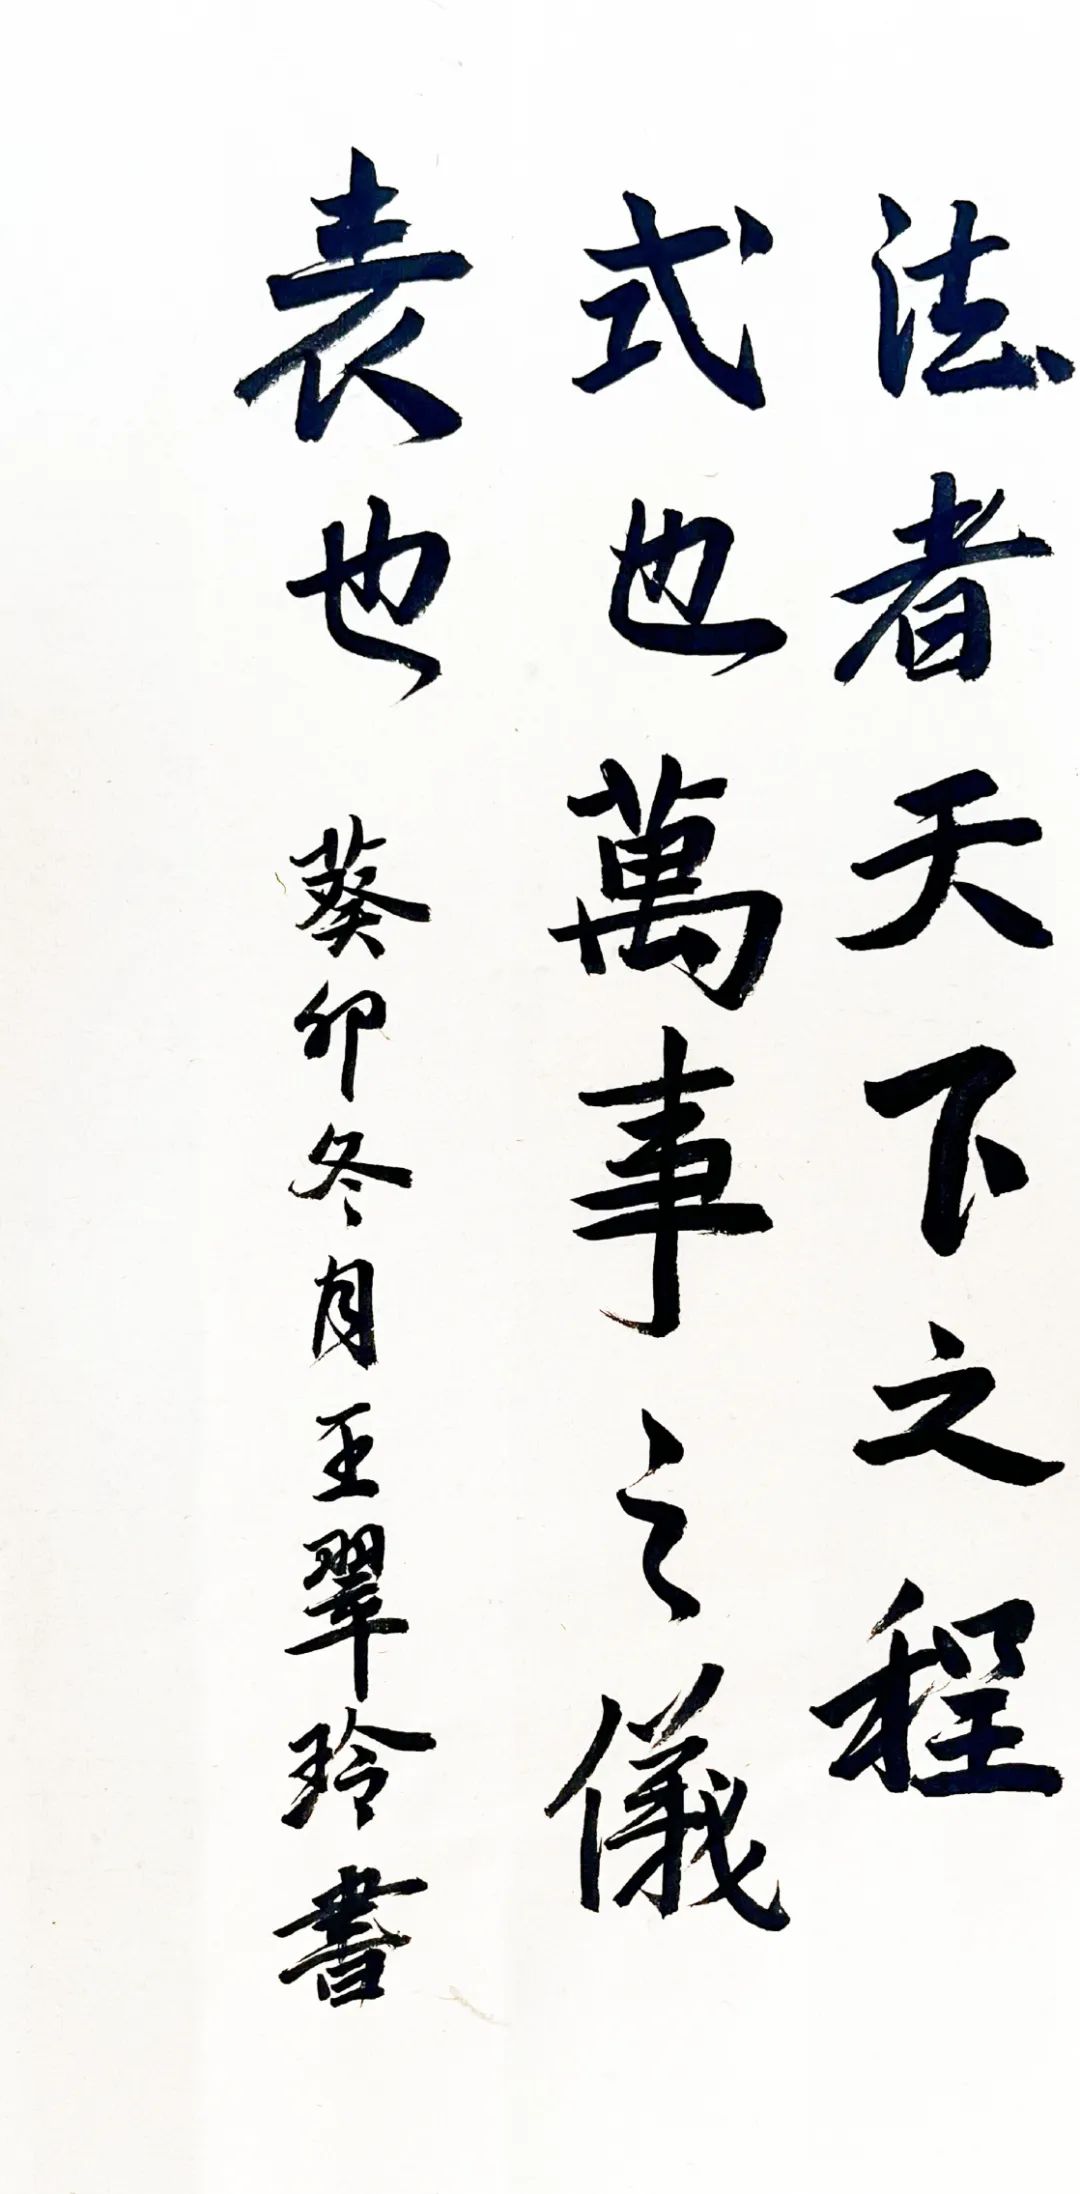 法者天下之程
式也萬事之儀
表也 葵卯冬月王翠玲書